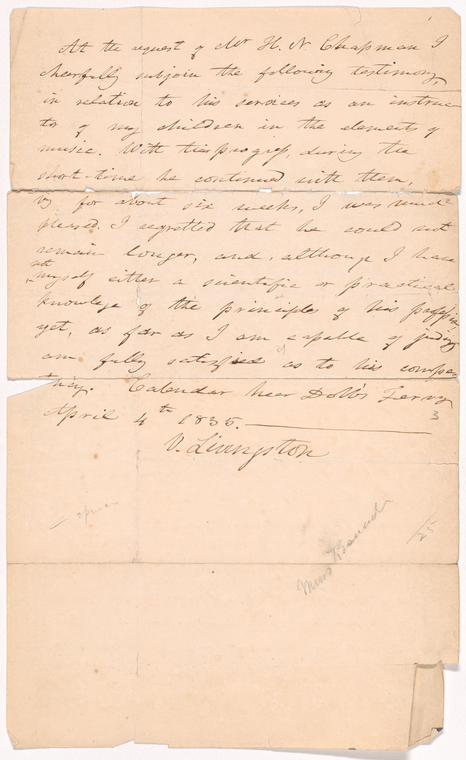 At the request of Mr H. N. Chapman I
cheerfully subjoin the following testimony,
in relation to his services as an instruc
tor of my children in the elements of
music. With their progress, during the
short time he continued with them,
for about six weeks, I was much
pleased. I regretted that he could not
remain longer, and, although I have
not
myself either a scientific or practical
knowlege of the principles of his profession
yet, as far as I am capable of judging
am fully satisfied as to his compe
tency. Calendar near Dobb's Ferry
April 4th 1835.
3
V. Livingston
Miss
/25